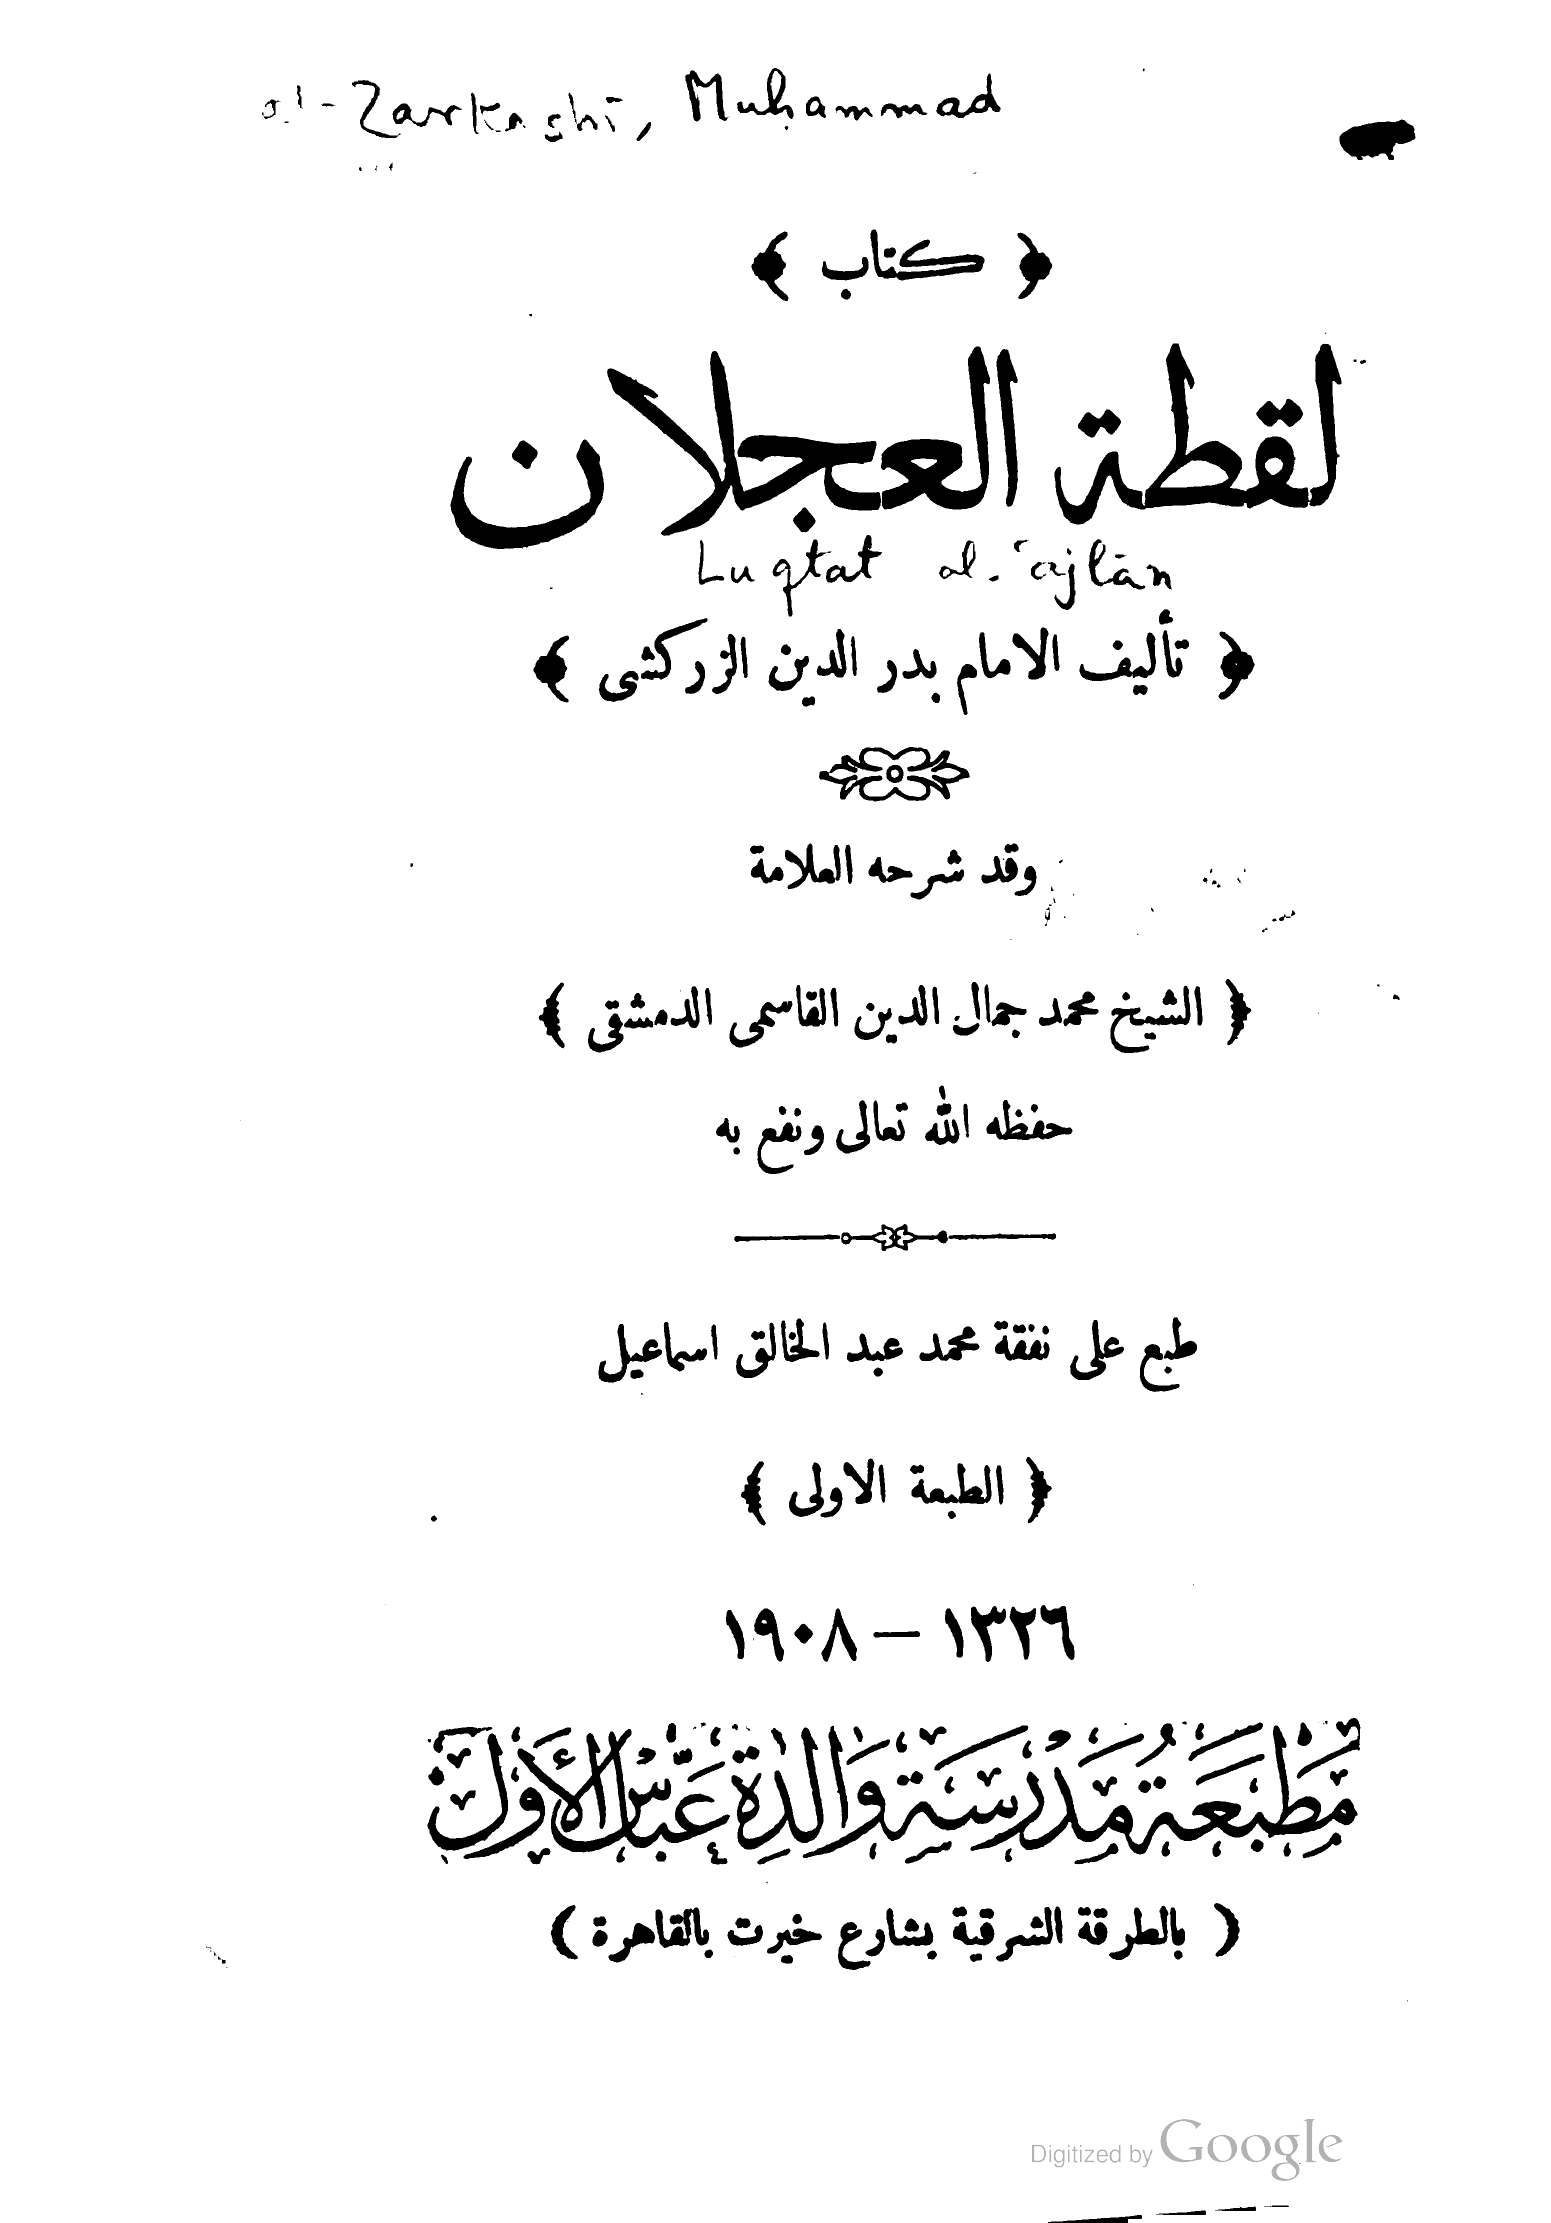 al-Zarkashī, Muḥammad
﴿ كتاب ﴾
لقطة العجلان
Luqtat al-'ajlān
﴿ تأليف الامام بدر الدين الزركشى ﴾
وقد شرحه العلامة
﴿ الشيخ محمد جمال الدين القاسمى الدمشقى ﴾
حفظه الله تعالى ونفع به
طبع على نفقة محمد عبد الخالق اسماعيل
﴿ الطبعة الاولى ﴾
١٣٢٦ — ١٩٠٨
مَطْبَعَةُ مَدْرَسَةِ وَالِدَةِ عَبَّاسِ الأَوَّلِ
( بالطرقة الشرقية بشارع خيرت بالقاهرة )
Digitized by Google